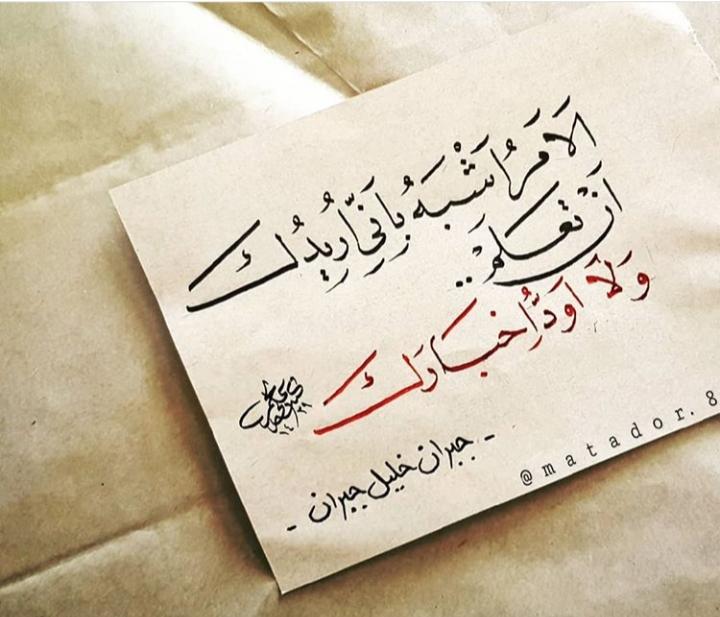 الَامَرُ اَشْبَهُ بِاَنِّي اُرِيدُكَ
اَنْ تَعلَمْ..
وَلَا اَودُّ اِخبَارَكَ
- جبران خليل جبران -
@matador.8